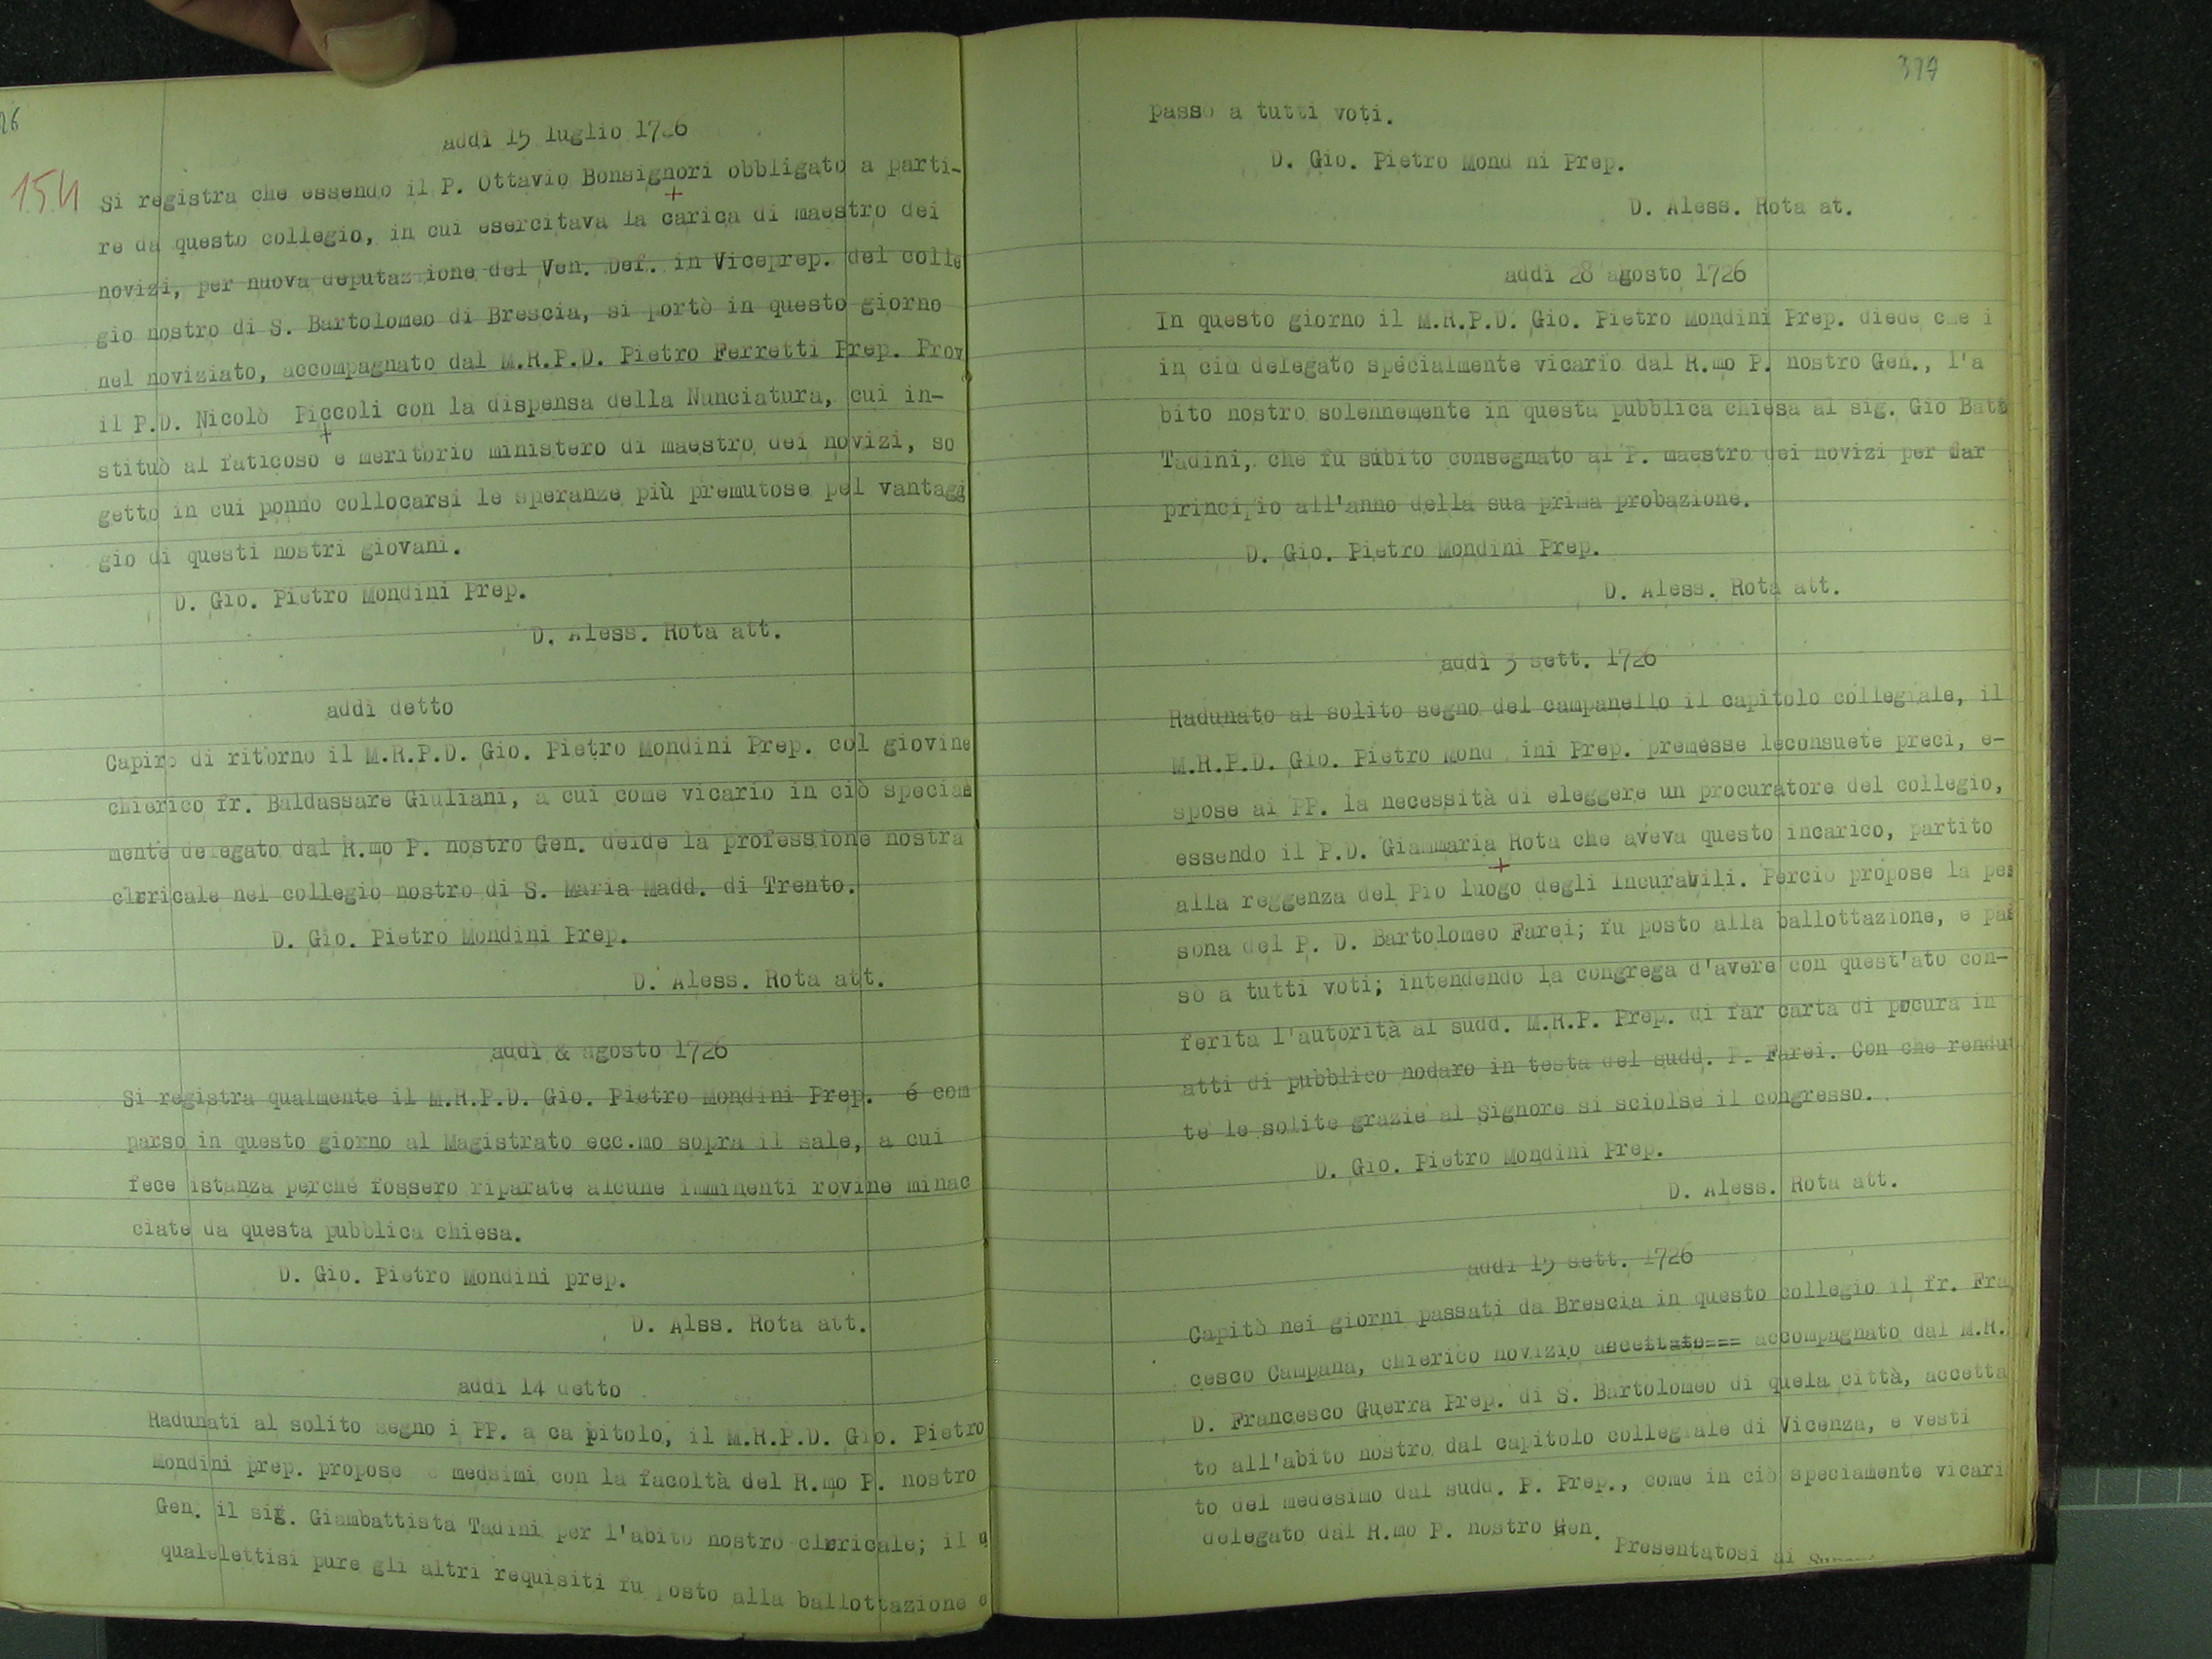 26
154
addì 15 luglio 1726
Si registra che essendo il P. Ottavio Bonsignori obbligato a parti-
re da questo collegio, in cui esercitava la carica di maestro dei
novizi, per nuova deputazione del Ven. Def. in Viceprep. del colle
gio nostro di S. Bartolomeo di Brescia, si portò in questo giorno
nel noviziato, accompagnato dal M.R.P.D. Pietro Ferretti Prep. Prov
il P.D. Nicolò Piccoli con la dispensa della Nunciatura, cui in-
stituò al faticoso e meritorio ministero di maestro dei novizi, so
getto in cui ponno collocarsi le speranze più premutose pel vantagg
gio di questi nostri giovani.
D. Gio. Pietro Mondini Prep.
D. Aless. Rota att.
addì detto
Capiro di ritorno il M.R.P.D. Gio. Pietro Mondini Prep. col giovine
chierico fr. Baldassare Giuliani, a cui come vicario in ciò special
mente delegato dal R.mo P. nostro Gen. deide la professione nostra
clericale nel collegio nostro di S. Maria Madd. di Trento.
D. Gio. Pietro Mondini Prep.
D. Aless. Rota att.
addì & agosto 1726
Si registra qualmente il M.R.P.D. Gio. Pietro Mondini Prep. é com
parso in questo giorno al Magistrato ecc.mo sopra il sale, a cui
fece istanza perché fossero riparate alcune imminenti rovine minac
ciate da questa pubblica chiesa.
D. Gio. Pietro Mondini prep.
D. Alss. Rota att.
addì 14 detto
Radunati al solito segno i PP. a ca pitolo, il M.R.P.D. Gio. Pietro
Mondini prep. propose e medsimi con la facoltà del R.mo P. nostro
Gen. il sig. Giambattista Tadini per l'abito nostro clericale; il q
qualelettisi pure gli altri requisiti fu posto alla ballottazione e
377
passo a tutti voti.
D. Gio. Pietro Mond ni Prep.
D. Aless. Rota at.
addì 28 agosto 1726
In questo giorno il M.R.P.D. Gio. Pietro Mondini Prep. diede che i
in ciò delegato specialmente vicario dal R.mo P. nostro Gen., l'a
bito nostro solennemente in questa pubblica chiesa al sig. Gio Batt
Tadini, che fu subito consegnato al P. maestro dei novizi per dar
principio all'anno della sua prima probazione.
D. Gio. Pietro Mondini Prep.
D. Aless. Rota att.
addì 3 sett. 1726
Radunato al solito segno del campanello il capitolo collegiale, il
M.R.P.D. Gio. Pietro Mond ini Prep. premesse leconsuete preci, e-
spose ai PP. la necessità di eleggere un procuratore del collegio,
essendo il P.D. Giammaria Rota che aveva questo incarico, partito
alla reggenza del Pio luogo degli Incurabili. Perciò propose la per
sona del P. D. Bartolomeo Farei; fu posto alla ballottazione, e pas
sò a tutti voti; intendendo la congrega d'avere con quest'ato con-
ferita l'autorità al sudd. M.R.P. Prep. di far carta di pocura in
atti di pubblico nodaro in testa del sudd. P. Farei. Con che rendut
te le solite grazie al Signore si sciolse il congresso.
D. Gio. Pietro Mondini Prep.
D. Aless. Rota att.
addì 15 sett. 1726
Capitò nei giorni passati da Brescia in questo collegio il fr. Fra
cesco Campana, chierico novizio ascettato=== accompagnato dal M.R.
D. Francesco Guerra Prep. di S. Bartolomeo di quela città, accetta
to all'abito nostro dal capitolo collegiale di Vicenza, e vesti
to del medesimo dal sudd. P. Prep., come in ciò speciamente vicari
delegato dal R.mo P. nostro Gen. Presentatosi ai